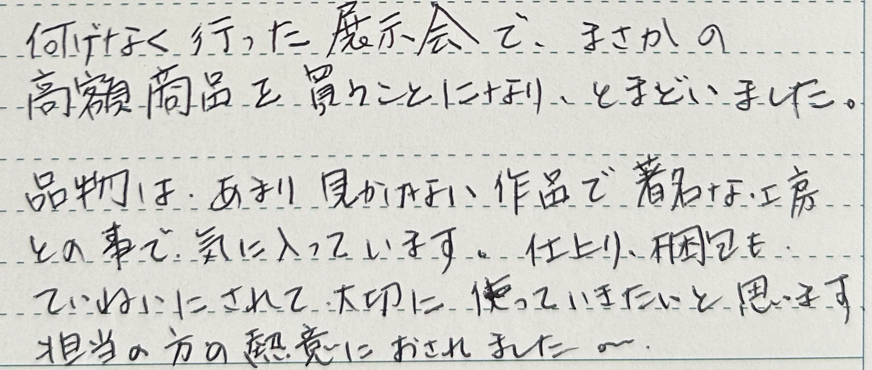 何げなく行った展示会で、まさかの
高額商品を買うことになり、とまどいました。
品物は、あまり見かけない作品で著名な工房
との事で、気に入っています。仕上り、梱包も
ていねいにされて、大切に使っていきたいと思います
担当の方の熱意におされました〜.